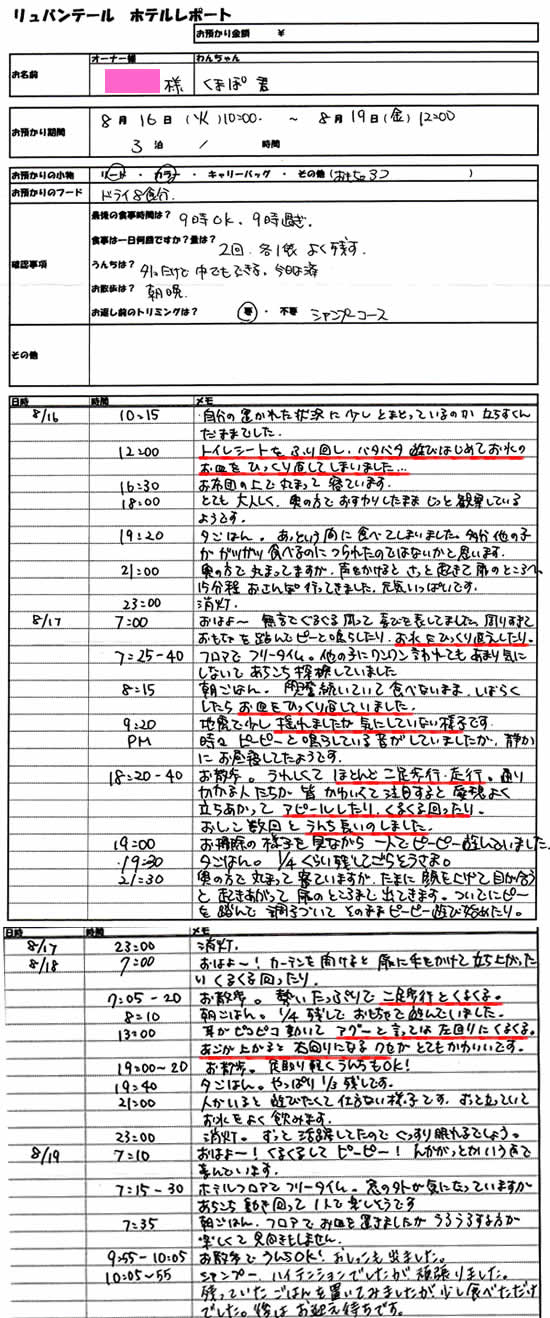 リュバンテール ホテルレポート
お預かり金額 ¥
オーナー様 わんちゃん
お名前 様 くまぽ 君
お預かり期間 8月16日(火)10:00. ~ 8月19日(金) 12:00
3泊 / 時間
お預かりの小物 リード ・ カラー ・ キャリーバッグ ・ その他(おもちゃ3コ )
お預かりのフード ドライ8食分.
確認事項 最後の食事時間は? 9時OK、9時過ぎ.
食事は一日何回ですか?量は? 2回.各1袋 よく残す.
うんちは? 外だけど中でもできる.今日は済
お散歩は? 朝晩.
お返し前のトリミングは? 要 ・ 不要 シャンプーコース
その他
日時 時間 メモ
8/16 10:15 自分の置かれた状況に少しとまどっているのか立ちすくん
だままでした.
12:00 トイレシートをふり回し、バタバタ遊びはじめてお水の
お皿をひっくり返してしまいました...
16:30 お布団の上で丸まって寝ています.
18:00 とても大人しく、奥の方でおすわりしたままじっと観察している
ようです.
19:20 夕ごはん。あっという間に食べてしまいました。多分他の子
がガツガツ食べるのにつられたのではないかと思います.
21:00 奥の方で丸まってますが、声をかけるとさっと起きて扉のところへ.
15分程おさんぽ行ってきました.元気いっぱいです.
23:00 消灯.
8/17 7:00 おはよ~ 無言でぐるぐる回って喜びを表してました。周りすぎて
おもちゃを踏んでピーと鳴らしたり.お水をひっくり返えしたり.
7:25-40 フロアでフリータイム。他の子にワンワン言われてもあまり気に
しないであちこち探検していました
8:15 朝ごはん.
したらお皿をひっくり返していました.
9:20 地震で少し揺れましたが気にしていない様子です.
PM 時々ピーピーと鳴らしている音がしていましたが、静か
にお昼寝してたようです.
18:20-40 お散歩。うれしくてほとんど二足歩行・走行。通り
かかる人たちが皆かわいくて注目すると
立ちあがってアピールしたり、くるくる回ったり.
おしっこ数回とうんち長いのしました.
19:00 お掃除の様子を見ながら一人でピーピー遊んでいました.
19:30 夕ごはん。1/4くらい残してごちそうさま。
21:30 奥の方で丸まって寝ていますが、たまに顔をあげて目が合う
と起きあがって扉のところまで出てきます。ついでにピー
を踏んで調子づいてそのままピーピー遊び始めたり。
日時 時間 メモ
8/17 23:00 消灯.
8/18 7:00 おはよ~!カーテンを開けると扉に手をかけて立ち上がった
りくるくる回ったり.
7:05-20 お散歩。勢いたっぷりで二足歩行とくるくる。
8:10 朝ごはん。1/4残しておもちゃで遊んでいました.
13:00 耳がピコピコ動いてアグーと言っては左回りにくるくる。
あごが上がると右回りになるクセがとてもかわいいです.
19:00~20 お散歩。足取り軽くうんちもOK!
19:40 夕ごはん。やっぱり1/3残しです.
21:00 人がいると遊びたくて仕方ない様子です.
お水をよく飲みます.
23:00 消灯。ずっと活躍してたのでぐっすり眠れるでしょう。
8/19 7:10 おはよ~!くるくるしてピーピー!んががっとかいう声で
喜んでいます.
7:15-30 ホテルフロアでフリータイム。窓の外が気になっていますが
あちこち動き回って1人で楽しそうです
7:35 朝ごはん.フロアでお皿を置きましたがうろうろする方が
楽しくて見向きもしません.
9:55-10:05 お散歩でうんちOK!おしっこも出ました。
10:05~55 シャンプー.ハイテンションでしたが頑張りました。
残っていたごはんを置いてみましたが少し食べただけ
でした。後はお迎え待ちです。